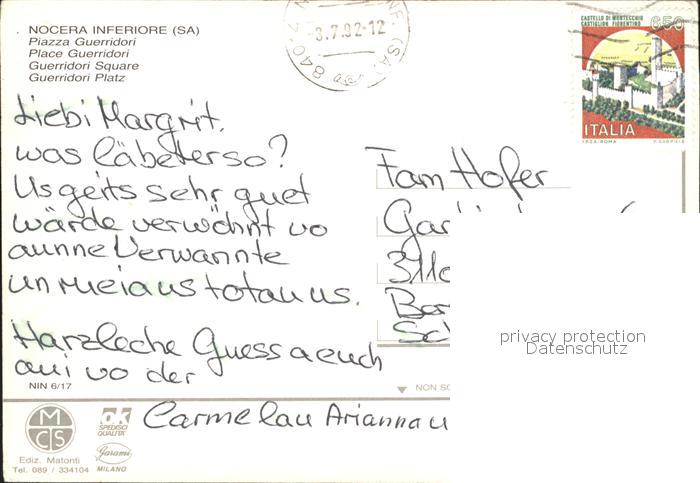 NOCERA INFERIORE (SA)
Piazza Guerridori
Place Guerridori
Guerridori Square
Guerridori Platz
-3.7.92-12
CASTELLO DI MONTECCHIO
CASTIGLION FIORENTINO
650
ITALIA
I.P.Z.S./ROMA
Liebi Margrit.
was läbeterso?
Us geits sehr guet
wärde verwöhnt vo
aunne Verwannte
un rueiaus totau us.
Harzleche Gruess a euch
aui vo der
Carmelau Ariannau
Fam Hofer
Gar
311
Ber
Sc
privacy protection
Datenschutz
NIN 6/17
NON SC
MCS
Ediz. Matonti
Tel. 089 / 334104
ok
SPEDISCI
QUALITÀ
Garami
MILANO